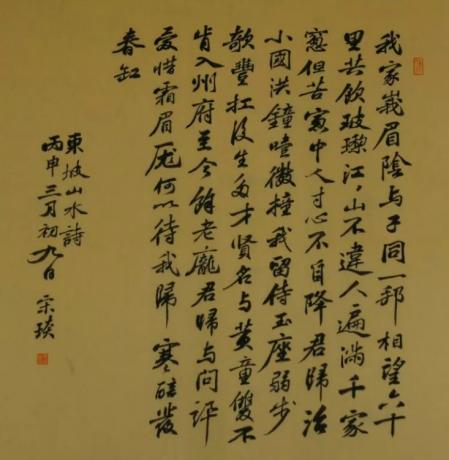 我家峩眉陰与子同一邦相望六十
里共飲玻瓈江〻山不違人遍滿千家
窻但苦窻中人寸心不自降君歸治
小國洪鐘噎微撞我留侍玉座弱步
欹豐扛後生多才賢名与黃童雙不
肯入州府至今餘老龐君歸与問訊
愛惜霜眉厖何以待我歸寒醅發
春缸
東坡山水詩
丙申三月初九日 宋琰